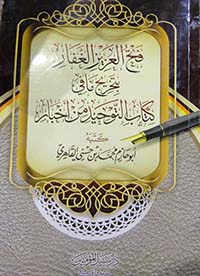 فتح العزيز الغفار
بتخريج ما في
كتاب التوحيد من أخبار
كتبه
أبو حازم محمد بن حسني القاهري